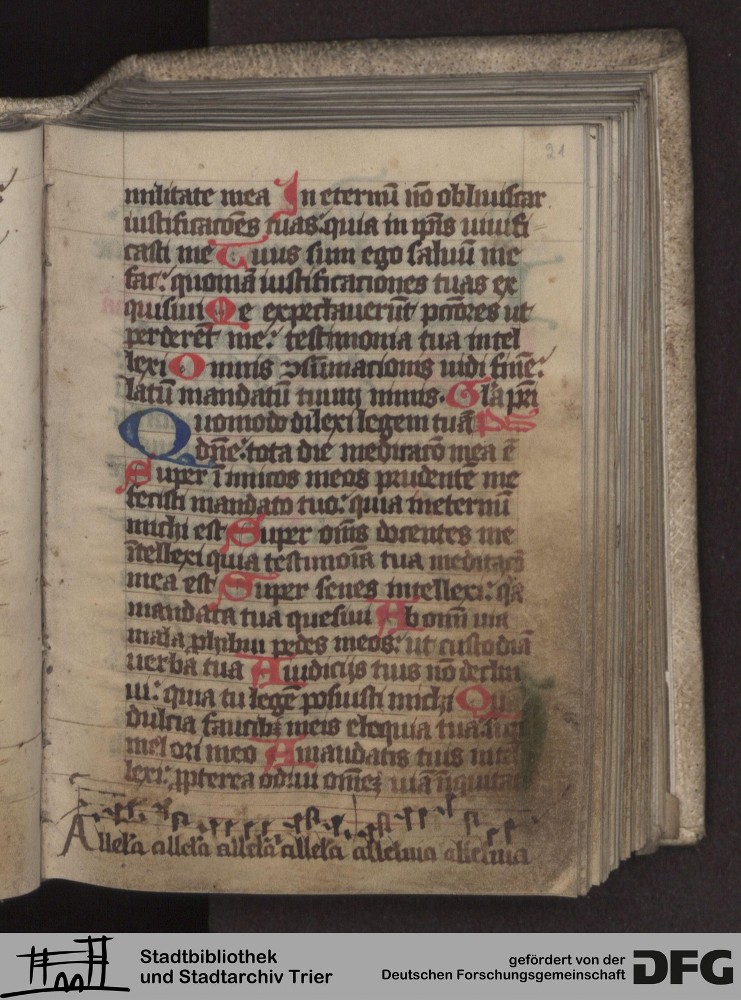 21
militate mea In eternū nō obliuiscar
iustificacōes tuas: quia in ip̄is uiuifi
casti me Tuus sum ego saluū me
fac: quoniā iustificaciones tuas ex
quisiui Me expectauerūt pctōres ut
perderēt me: testimonia tua intel
lexi Omnis ↄsūmacionis uidi finē:
latū mandatū tuum nimis. Gła pr̄i
Quomodo dilexi legem tuā ps
dn̄e: tota die meditacō mea ē
Super īimicos meos prudentē me
fecisti mandato tuo: quia ineternū
michi est Super om̄s docentes me
ītellexi quia testimoīa tua meditacō
mea est Super senes intellexi: q̄a
mandata tua quesiui Ab omni uia
mala ꝓhibui pedes meos: ut custodiā
uerba tua A iudicijs tuis nō declin
ui: quia tu legē posuisti michi
dulcia faucibꝫ meis eloquia tua
mel ori meo A mandatis tuis intel
lexi: ꝓpterea odiui om̄eꝫ uiā īiquitat
Allel'a allel'a allel'a allel'a alleluia alleluia
Stadtbibliothek
und Stadtarchiv Trier
gefördert von der
Deutschen Forschungsgemeinschaft
DFG